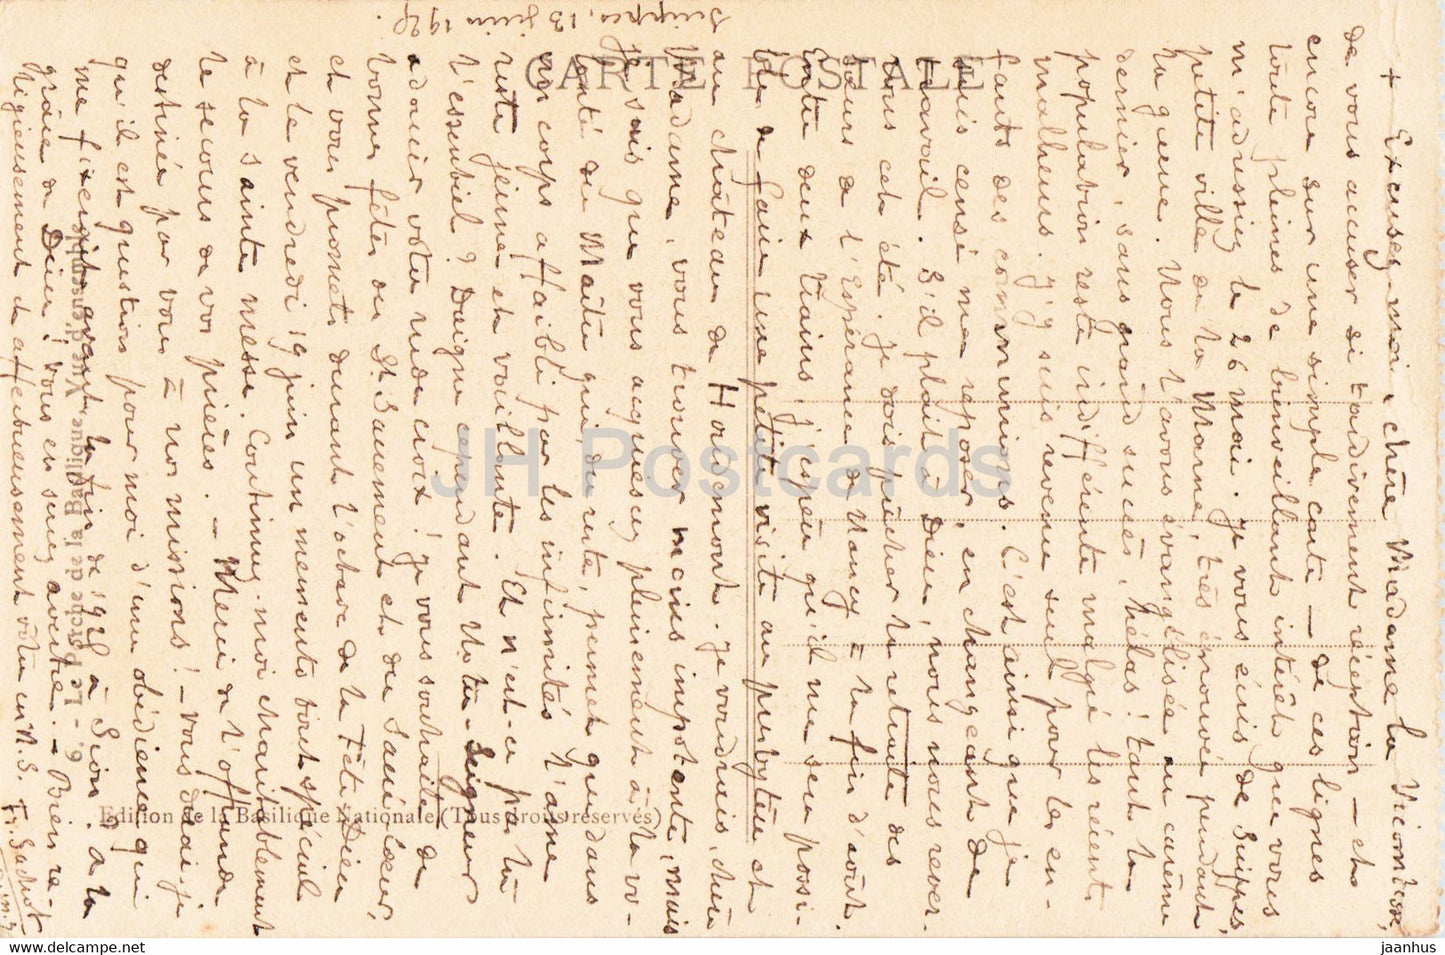 CARTE POSTALE
Suippes, 13 juin 19
+ Excusez-moi, chère Madame la Vicomtesse,
de vous accuser si tardivement réception — et
encore sur une simple carte — de ces lignes
toute pleines de bienveillant intérêt que vous
m'adressiez le 26 mai. Je vous écris de Suippes,
petite ville de la Marne, très éprouvée pendant
la guerre. Nous l'avons évangélisée au carême
dernier, sans grand succès, hélas ! tant la
population reste indifférente malgré les récents
malheurs. J'y suis revenu seul pour les en-
fants des communions. C'est ainsi que je
suis censé me reposer, en changeant de
travail. S'il plaît à Dieu, nous nous rever-
rons cet été. Je dois prêcher la retraite des
sœurs de l'Espérance de Nancy à la fin d'août.
Entre deux trains, j'espère qu'il me sera possi-
ble de faire une petite visite au presbytère et
au château de Houdemont. Je voudrais, chère
Madame, vous trouver moins impotente, mais
je sais que vous acquiescez pleinement à la vo-
lonté du Maître qui, du reste, permet que dans
un corps affaibli par les infirmités l'âme
reste jeune et vaillante. Et n'est-ce pas là
l'essentiel ? Daigne cependant Notre-Seigneur
adoucir votre rude croix ! Je vous souhaite de
bonnes fêtes du St Sacrement et du Sacré Cœur,
et vous promets durant l'octave de la Fête Dieu
et le vendredi 19 juin un memento tout spécial
à la sainte messe. Continuez-moi charitablement
le secours de vos prières. — Merci de l'offrande
destinée par vous à nos missions ! — Vous disai-je
qu'il est question pour moi d'une obédience qui
me fixerait avant la fin de 19 à Sion. À la
grâce de Dieu ! Vous en serez avertie. — Bien re-
ligieusement et affectueusement vôtre en N.S.
Fr. Gachot
6. - Le Porche de la Basilique. Vue d'ensemble
Edition de la Basilique Nationale (Tous droits réservés)
JH Postcards
hip.com/store/jaanhus
jaanhus